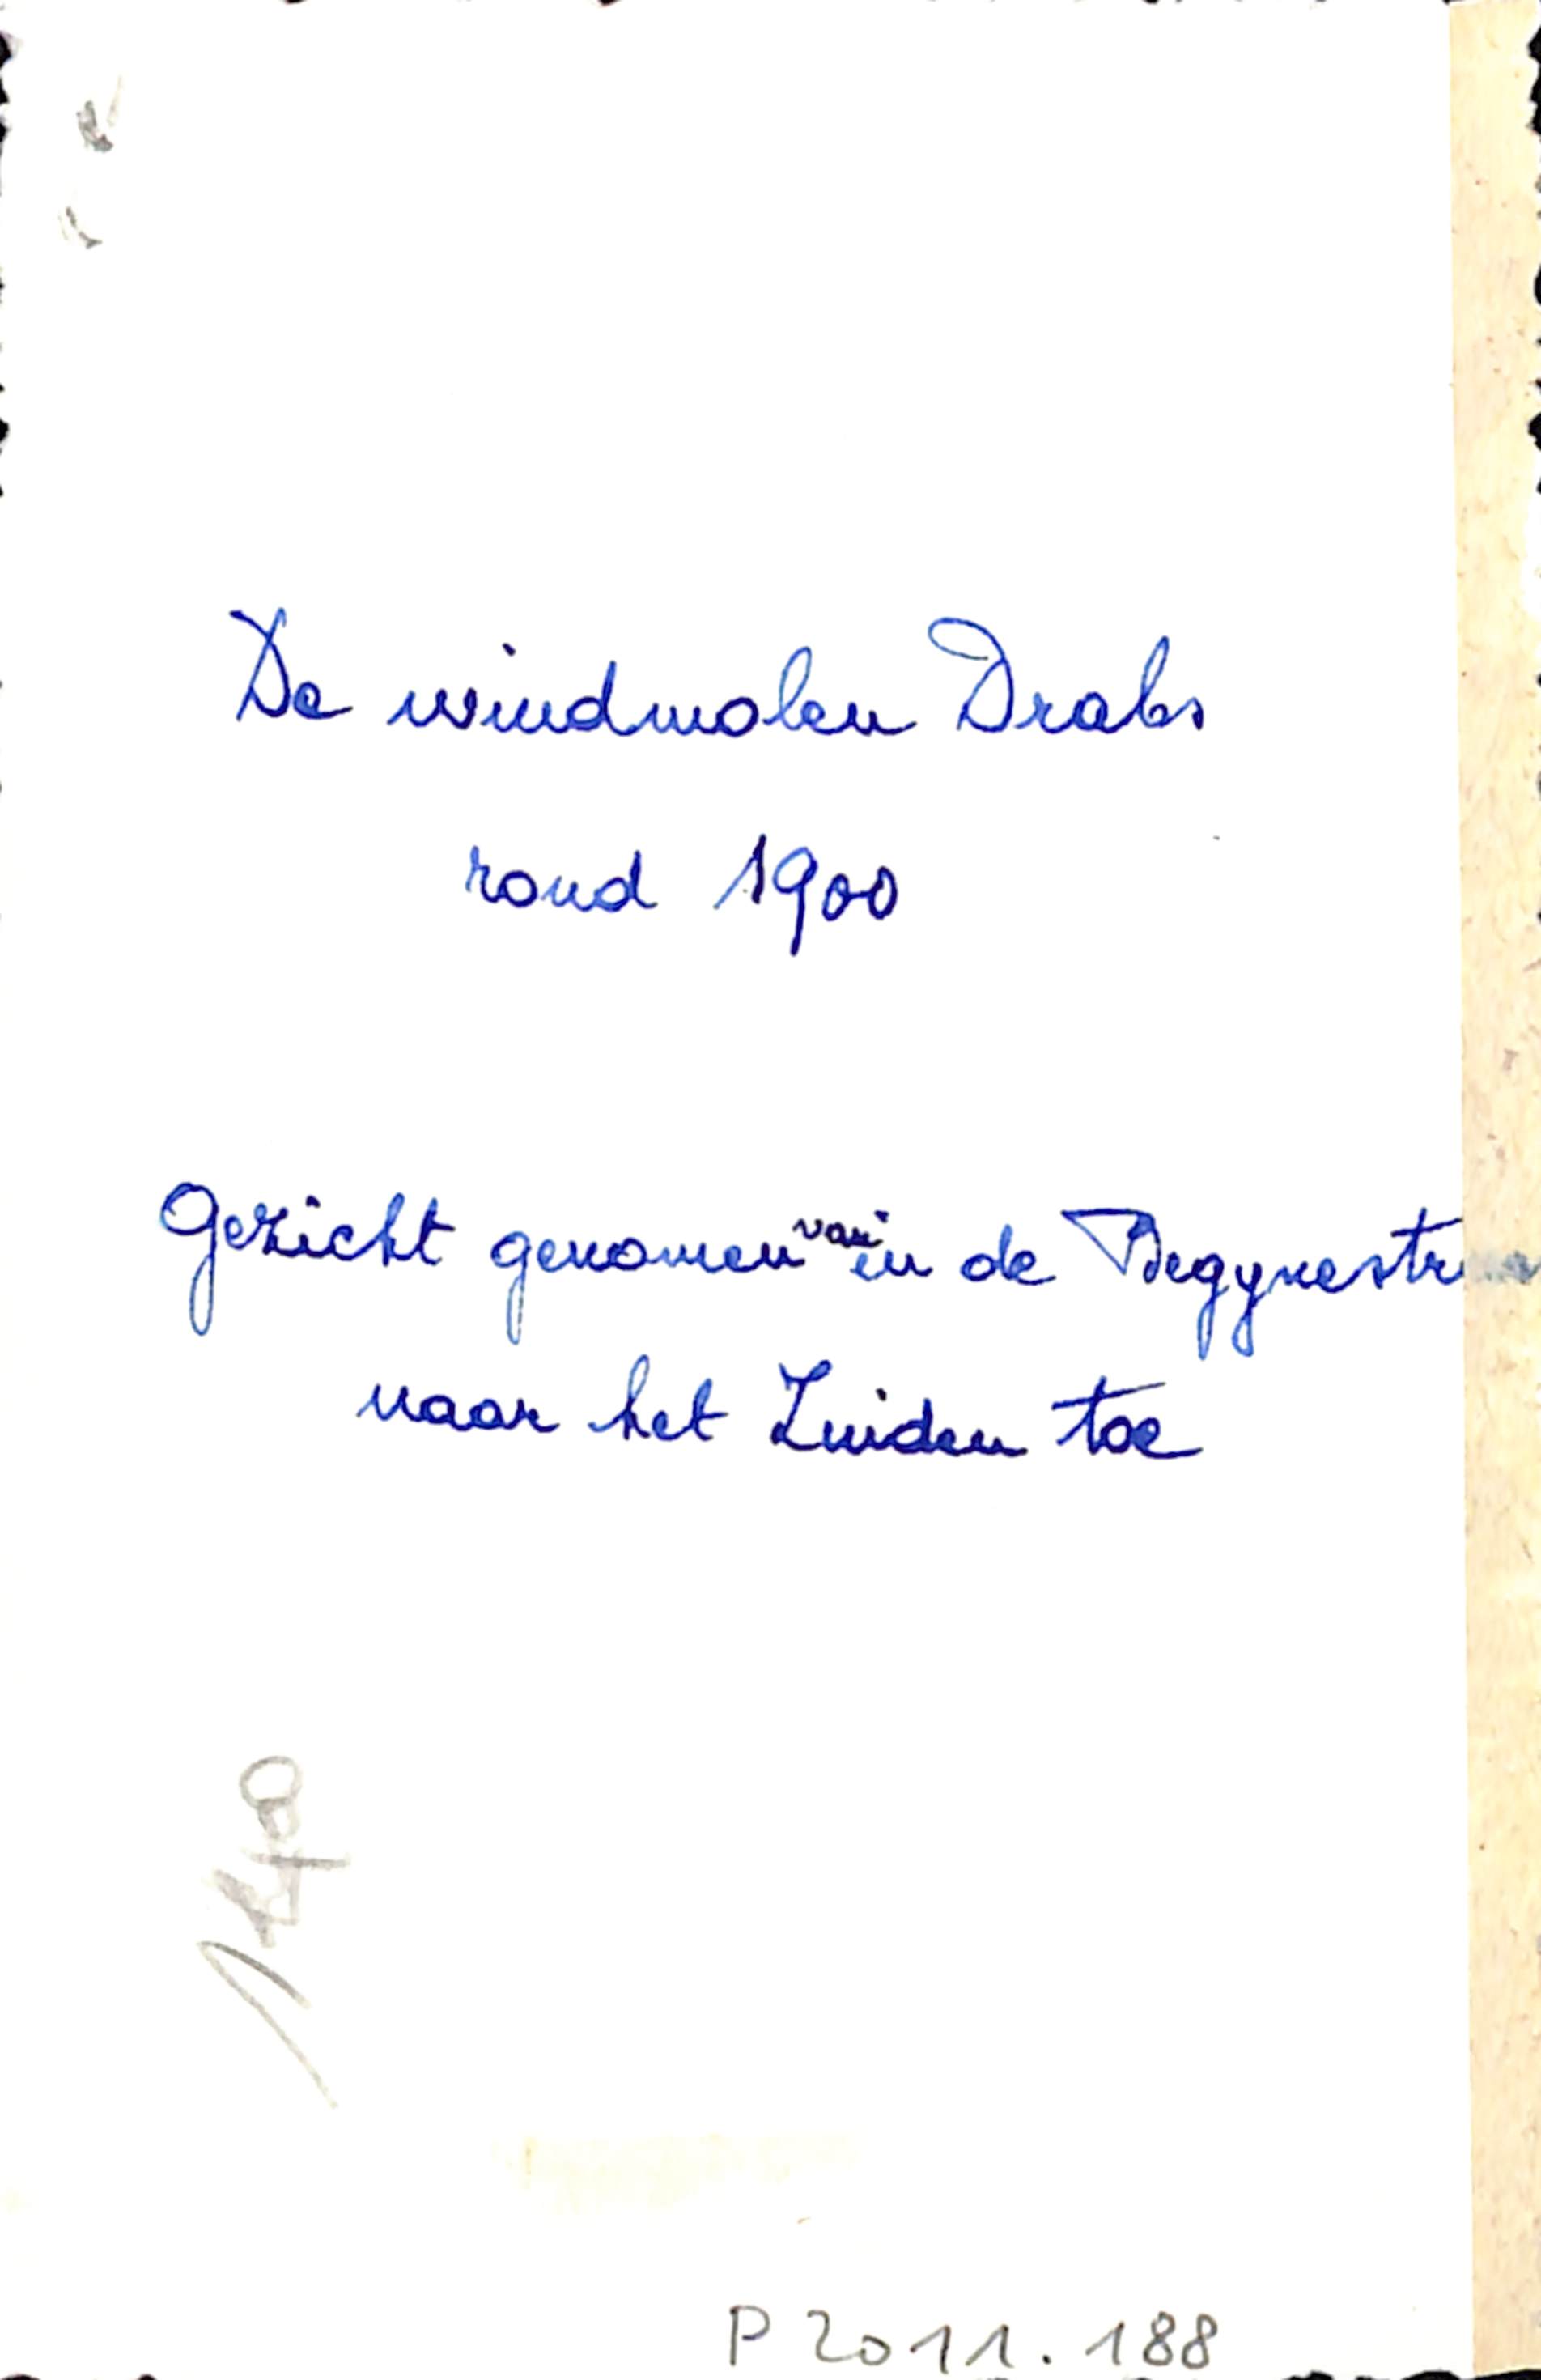 De windmolen Drabs
rond 1900
Gezicht genomen van in de Begynestr
naar het Zuiden toe
P 2011.188